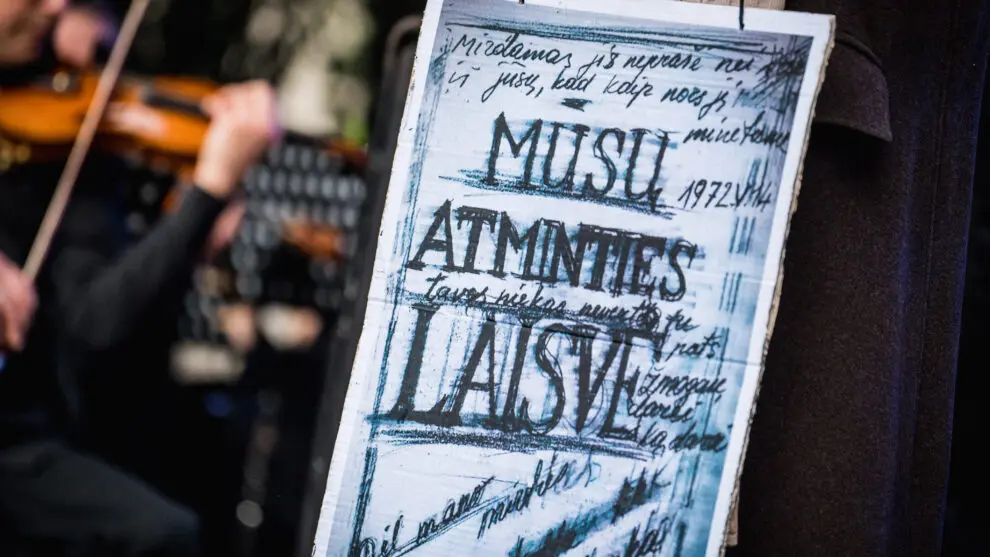 Mirdamas jis neprašė nei
iš jūsų, kad kaip nors jį
minėtume
MŪSŲ
1972.V.14
ATMINTIES
taves niekas nevertė tu
LAISVĖ
pats
žmogau,
darei
ką darei
Dėl mano
mirties